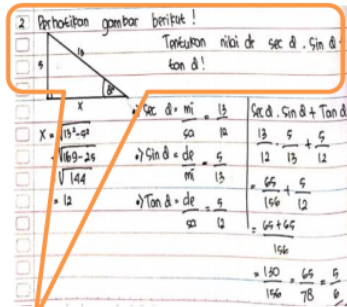 2 Perhatikan gambar berikut!
Tentukan nilai dr sec α . Sin α +
tan α!
13
5
α°
x
x = √13²-5²
= √169-25
√144
= 12
•) Sec α = mi/sa = 13/12
•) Sin α = de/mi = 5/13
•) Tan α = de/sa = 5/12
Sec α . Sin α + Tan α
13/12 . 5/13 + 5/12
= 65/156 + 5/12
= 65+65/156
= 130/156 = 65/78 = 5/6